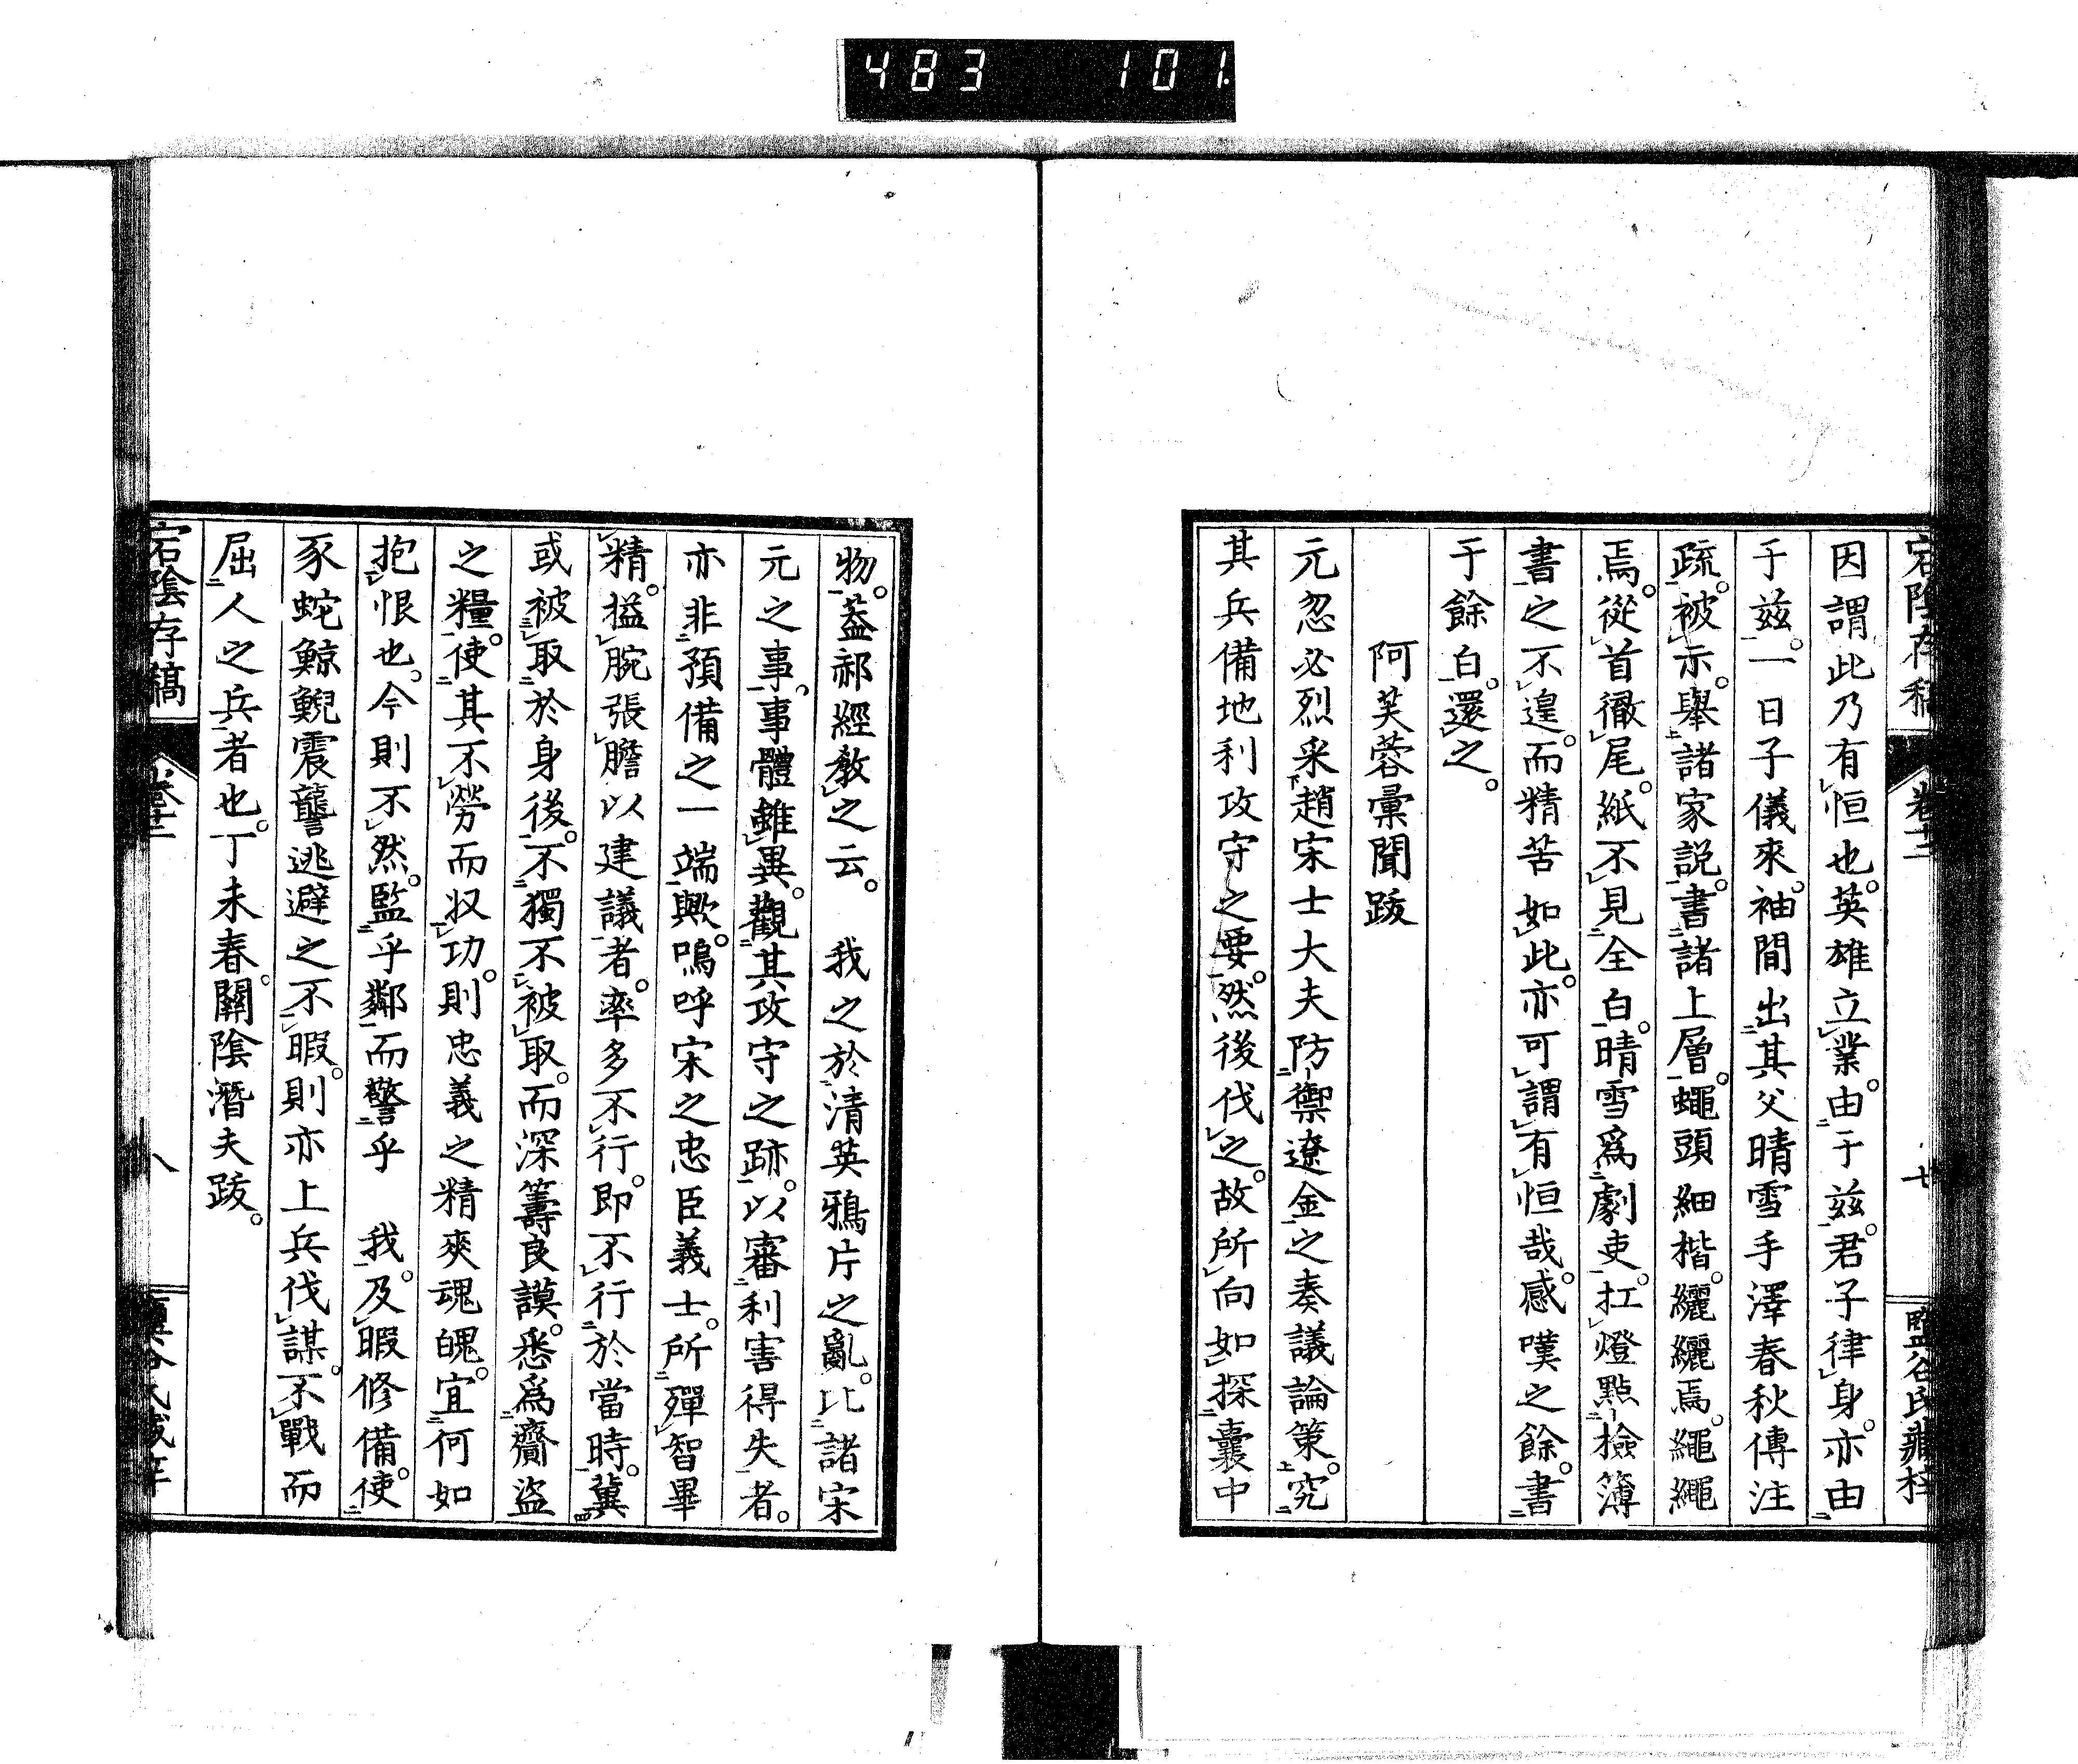 483 101
宕陰存稿 卷十二 七 鹽谷氏藏梓
因謂此乃有恒也。英雄立業。由于茲。君子律身。亦由
于茲。一日子儀來。袖間出其父晴雪手澤春秋傳注
疏。被示。舉諸家說。書諸上層。蠅頭細楷。纚纚焉。繩繩
焉。從首徹尾。紙不見全白。晴雪爲劇吏。扛燈點檢簿
書之不遑。而精苦如此。亦可謂有恒哉。感嘆之餘。書
于餘白。還之。
阿芙蓉彙聞跋
元忽必烈采趙宋士大夫防禦遼金之奏議論策。究
其兵備地利攻守之要。然後伐之。故所向如探囊中
物。葢郝經教之云。 我之於清英鴉片之亂。比諸宋
元之事。事體雖異。觀其攻守之跡。以審利害得失者。
亦非預備之一端歟。嗚呼宋之忠臣義士。所殫智畢
精。搤腕張膽以建議者。率多不行。即不行於當時。冀
或被取於身後。不獨不被取。而深籌良謨。悉爲齎盜
之糧。使其不勞而收功。則忠義之精爽魂魄。宜何如
抱恨也。今則不然。監乎鄰而警乎 我。及暇修備。使
豕蛇鯨鯢震讋逃避之不暇。則亦上兵伐謀。不戰而
屈人之兵者也。丁未春。關陰潛夫跋。
宕陰存稿 卷十二 八